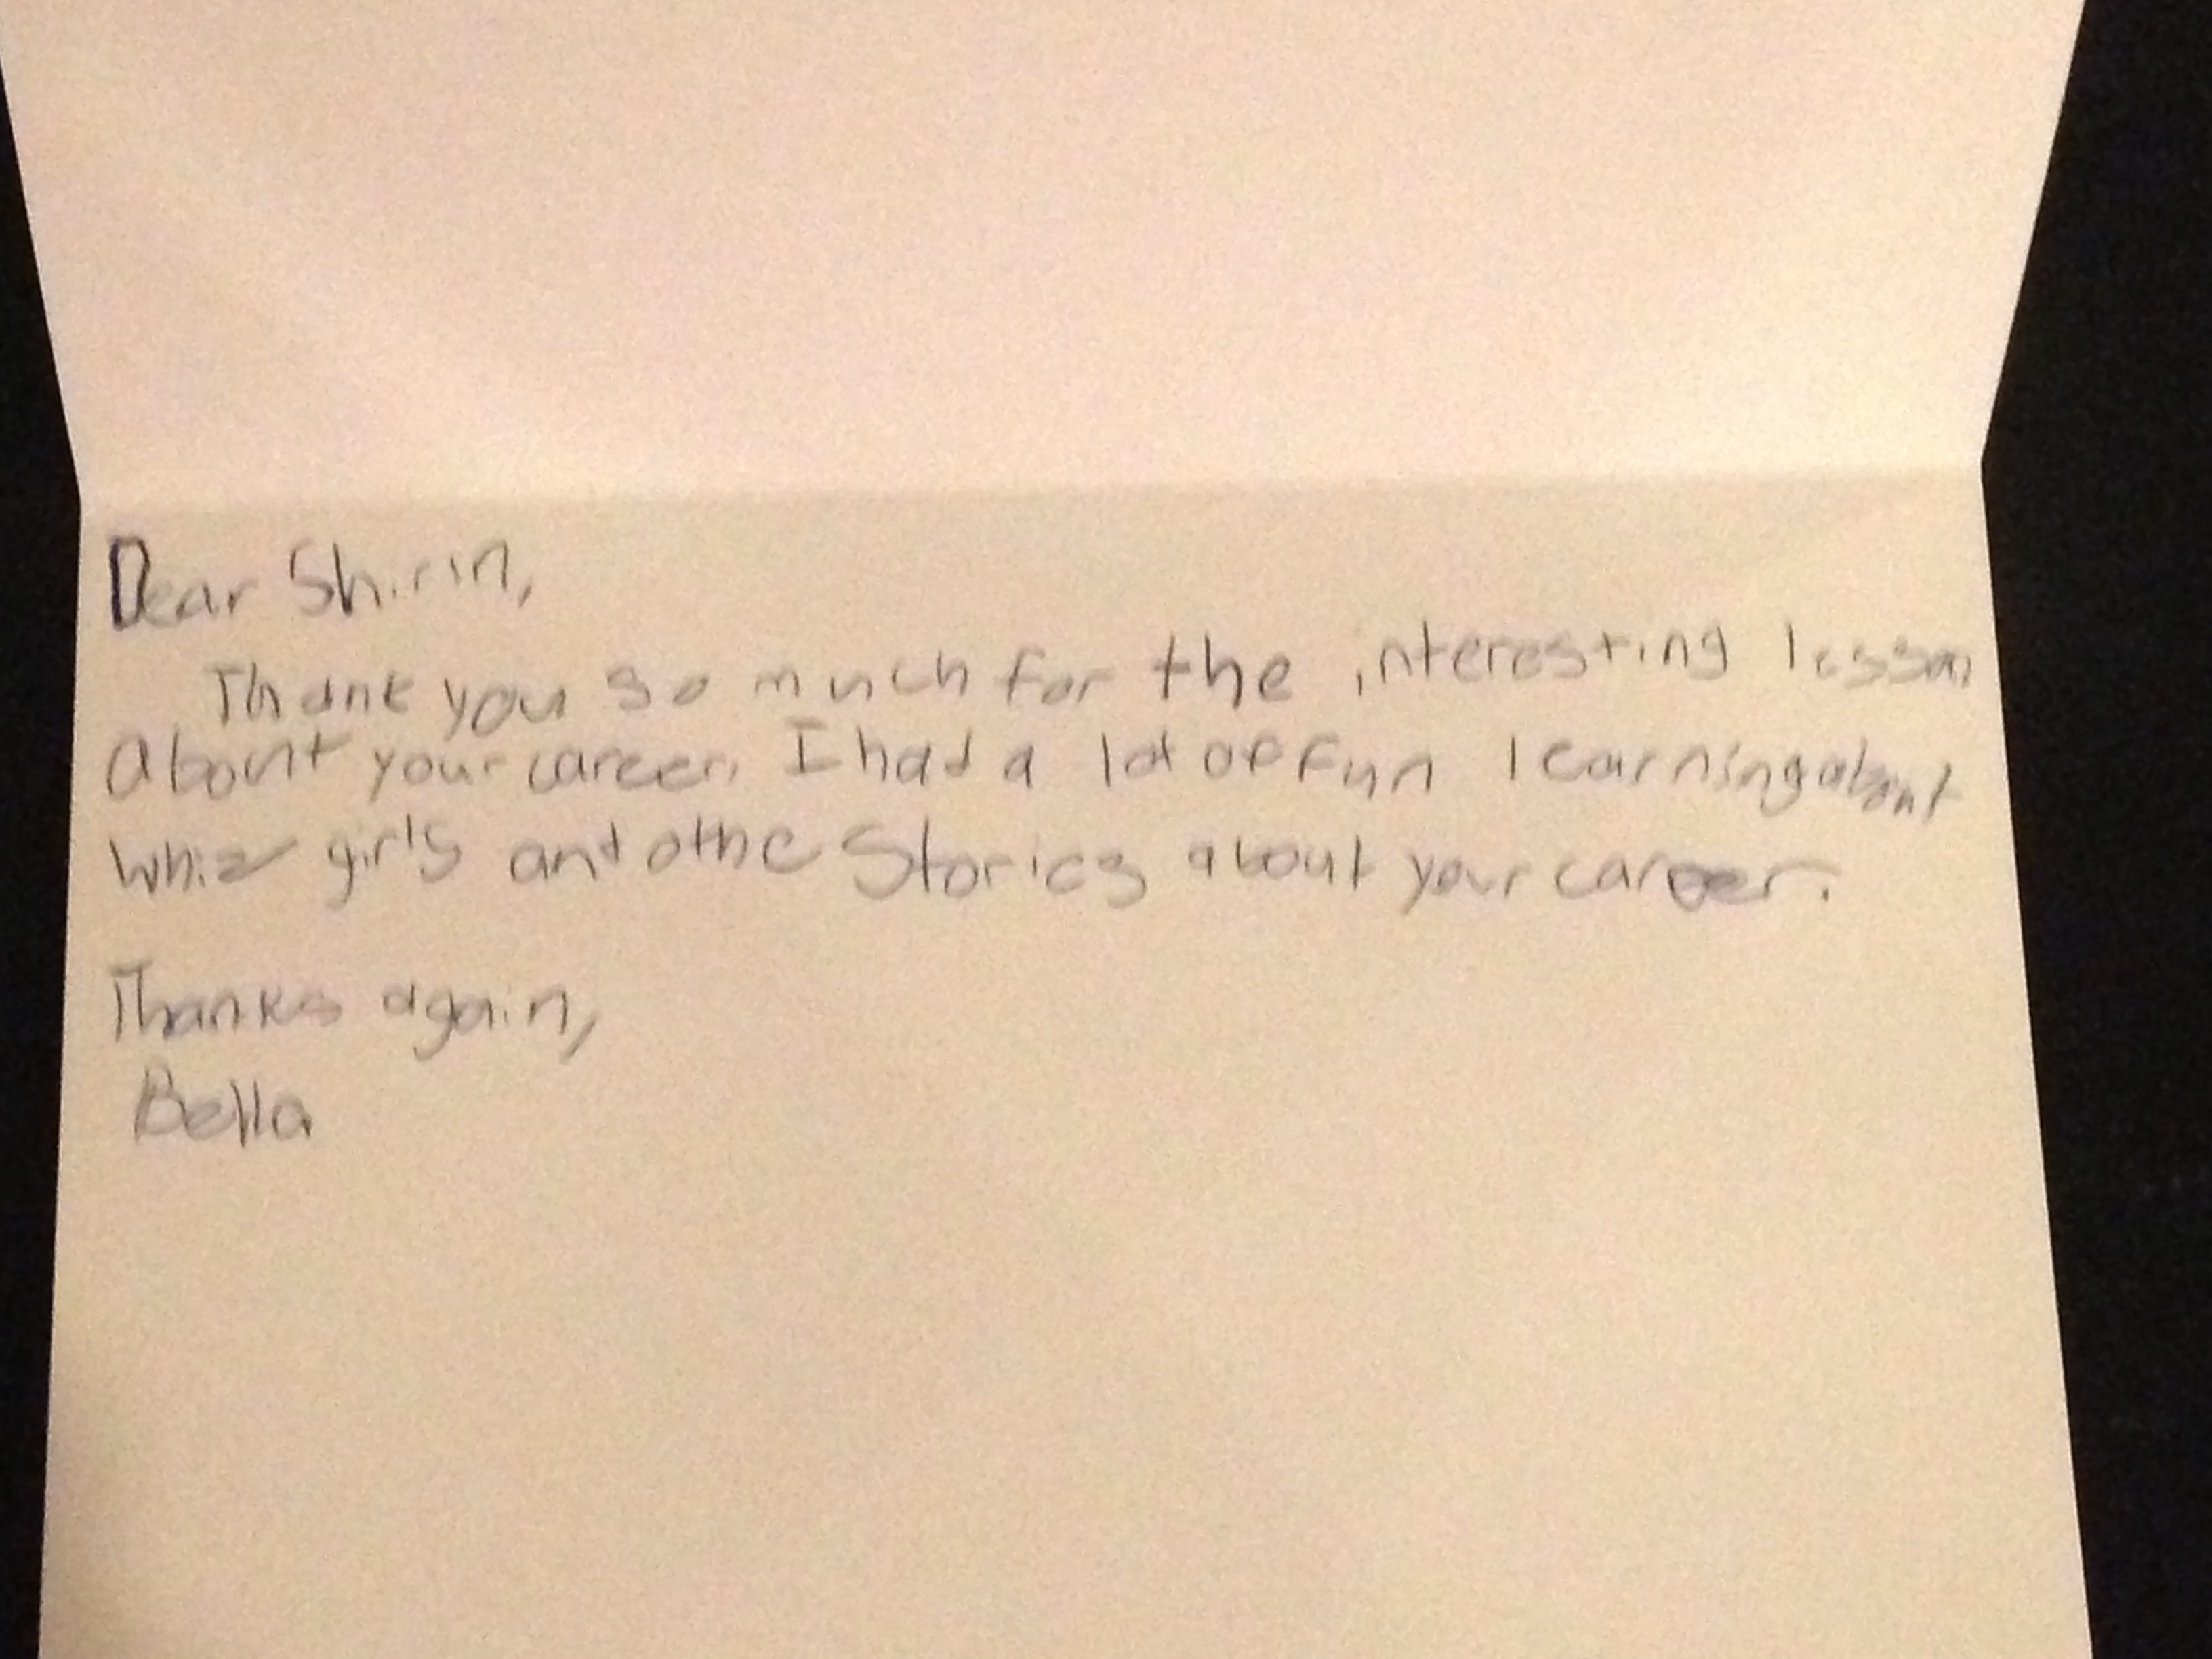 Dear Shirin,
Thank you so much for the interesting lesson
about your career. I had a lot of fun learning about
whiz girls and othe stories about your career.
Thanks again,
Bella